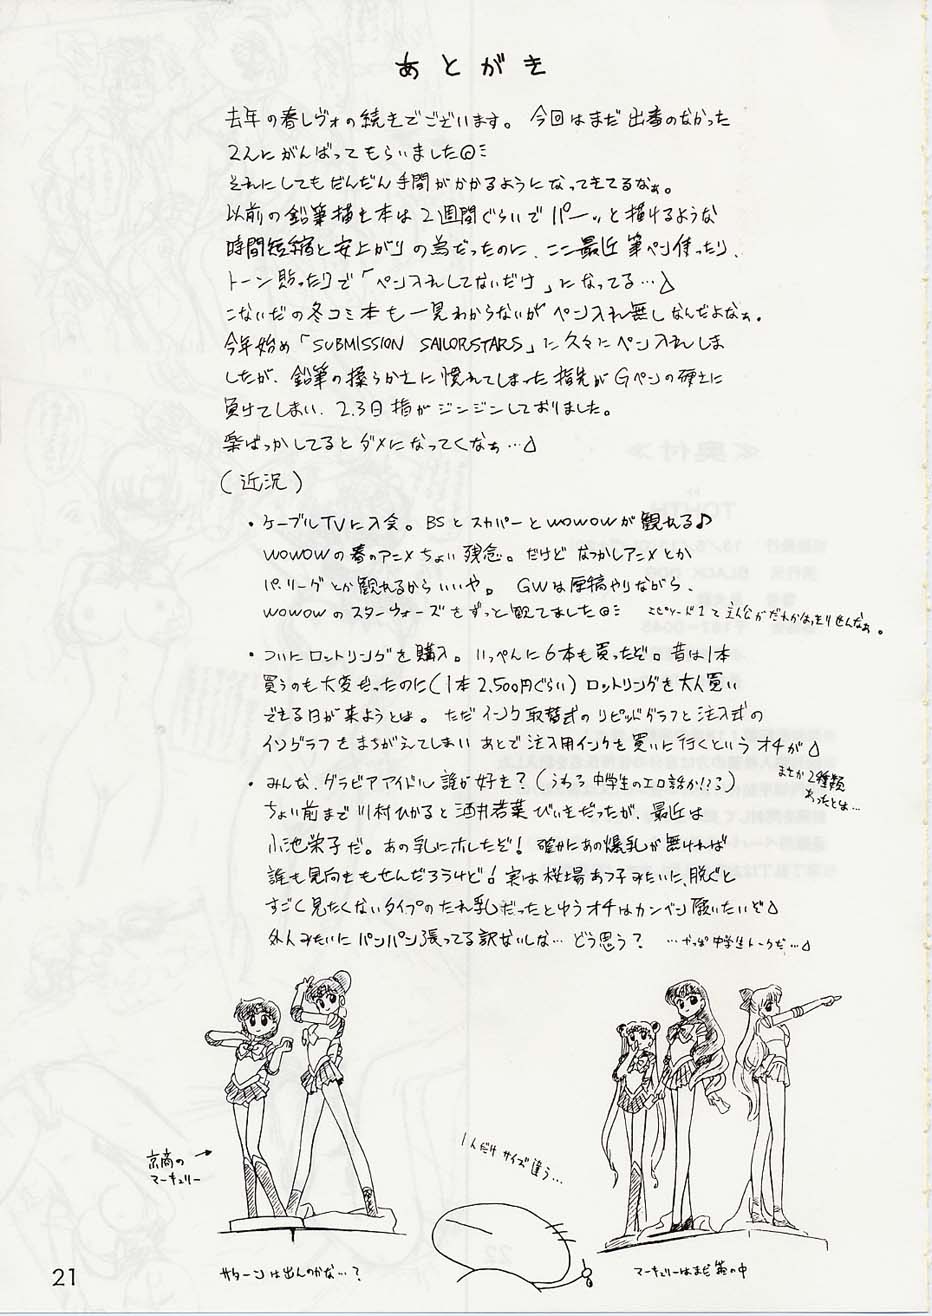 あとがき
去年の春レヴォの続きでございます。今回はまだ出番のなかった
2人にがんばってもらいました
それにしてもだんだん手間がかかるようになってきてるなぁ。
以前の鉛筆描き本は2週間ぐらいでパーッと描けるような
時間短縮と安上がりの為だったのに、ここ最近筆ペン使ったり、
トーン貼ったりで「ペン入れしてないだけ」になってる…
こないだの冬コミ本も一見わからないがペン入れ無しなんだよなぁ。
今年始め「SUBMISSION SAILORSTARS」に久々にペン入れしま
したが、鉛筆の柔らかさに慣れてしまった指先がGペンの硬さに
負けてしまい、2.3日指がジンジンしておりました。
楽ばっかしてるとダメになってくなぁ…
(近況)
・ケーブルTVに入会。BSとスカパーとWOWOWが観れる♪
WOWOWの春のアニメちょい残念。だけどなつかしアニメとか
パ・リーグとか観れるからいいや。GWは原稿やりながら、
WOWOWのスターウォーズをずっと観てました
エピソード1て主人公がだれかはっきりせんなぁ。
・ついにロットリングを購入。いっぺんに6本も買ったぞ。昔は1本
買うのも大変だったのに(1本2,500円ぐらい)ロットリングを大人買い
できる日が来ようとは。ただインク取替式のラピッドグラフと注入式の
イソグラフをまちがえてしまいあとで注入用インクを買いに行くというオチが
まさか2種類
あったとは…
・みんな、グラビアアイドル誰が好き?(うわっ中学生のエロ話か!?)
ちょい前まで川村ひかると酒井若菜びいきだったが、最近は
小池栄子だ。あの乳にホレたぞ!確かにあの爆乳が無ければ
誰も見向きもせんだろうけど!実は桜場あつ子みたいに、脱ぐと
すごく見たくないタイプのたれ乳だったとゆうオチはカンベン願いたいぞ
外人みたいにパンパン張ってる訳ないしな…どう思う?
…やっぱ中学生トークだ…
京商の
マーキュリー
1人だけサイズ違う…
サターンは出んのかな…?
マーキュリーはまだ箱の中
21